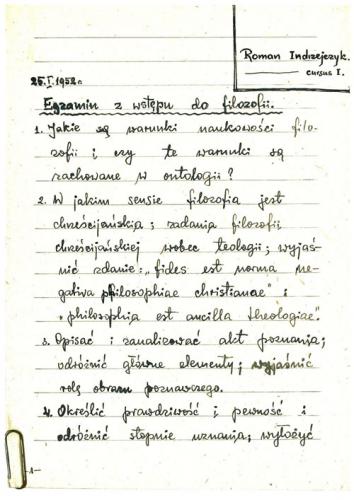 Roman Indrzejczyk.
cursus I.
25.I.1952 r.
Egzamin z wstępu do filozofii.
1. Jakie są warunki naukowości filo-
zofii i czy te warunki są
zachowane w ontologii?
2. W jakim sensie filozofia jest
chrześcijańską; zadania filozofii
chrześcijańskiej wobec teologii; wyjaś-
nić zdanie: „fides est norma ne-
gativa philosophiae christianae" i
"philosophia est ancilla theologiae".
3. Opisać i zanalizować akt poznania;
odróżnić główne elementy; wyjaśnić
rolę obrazu poznawczego.
4. Określić prawdziwość i pewność i
odróżnić stopnie uznania; wyłożyć
-1-